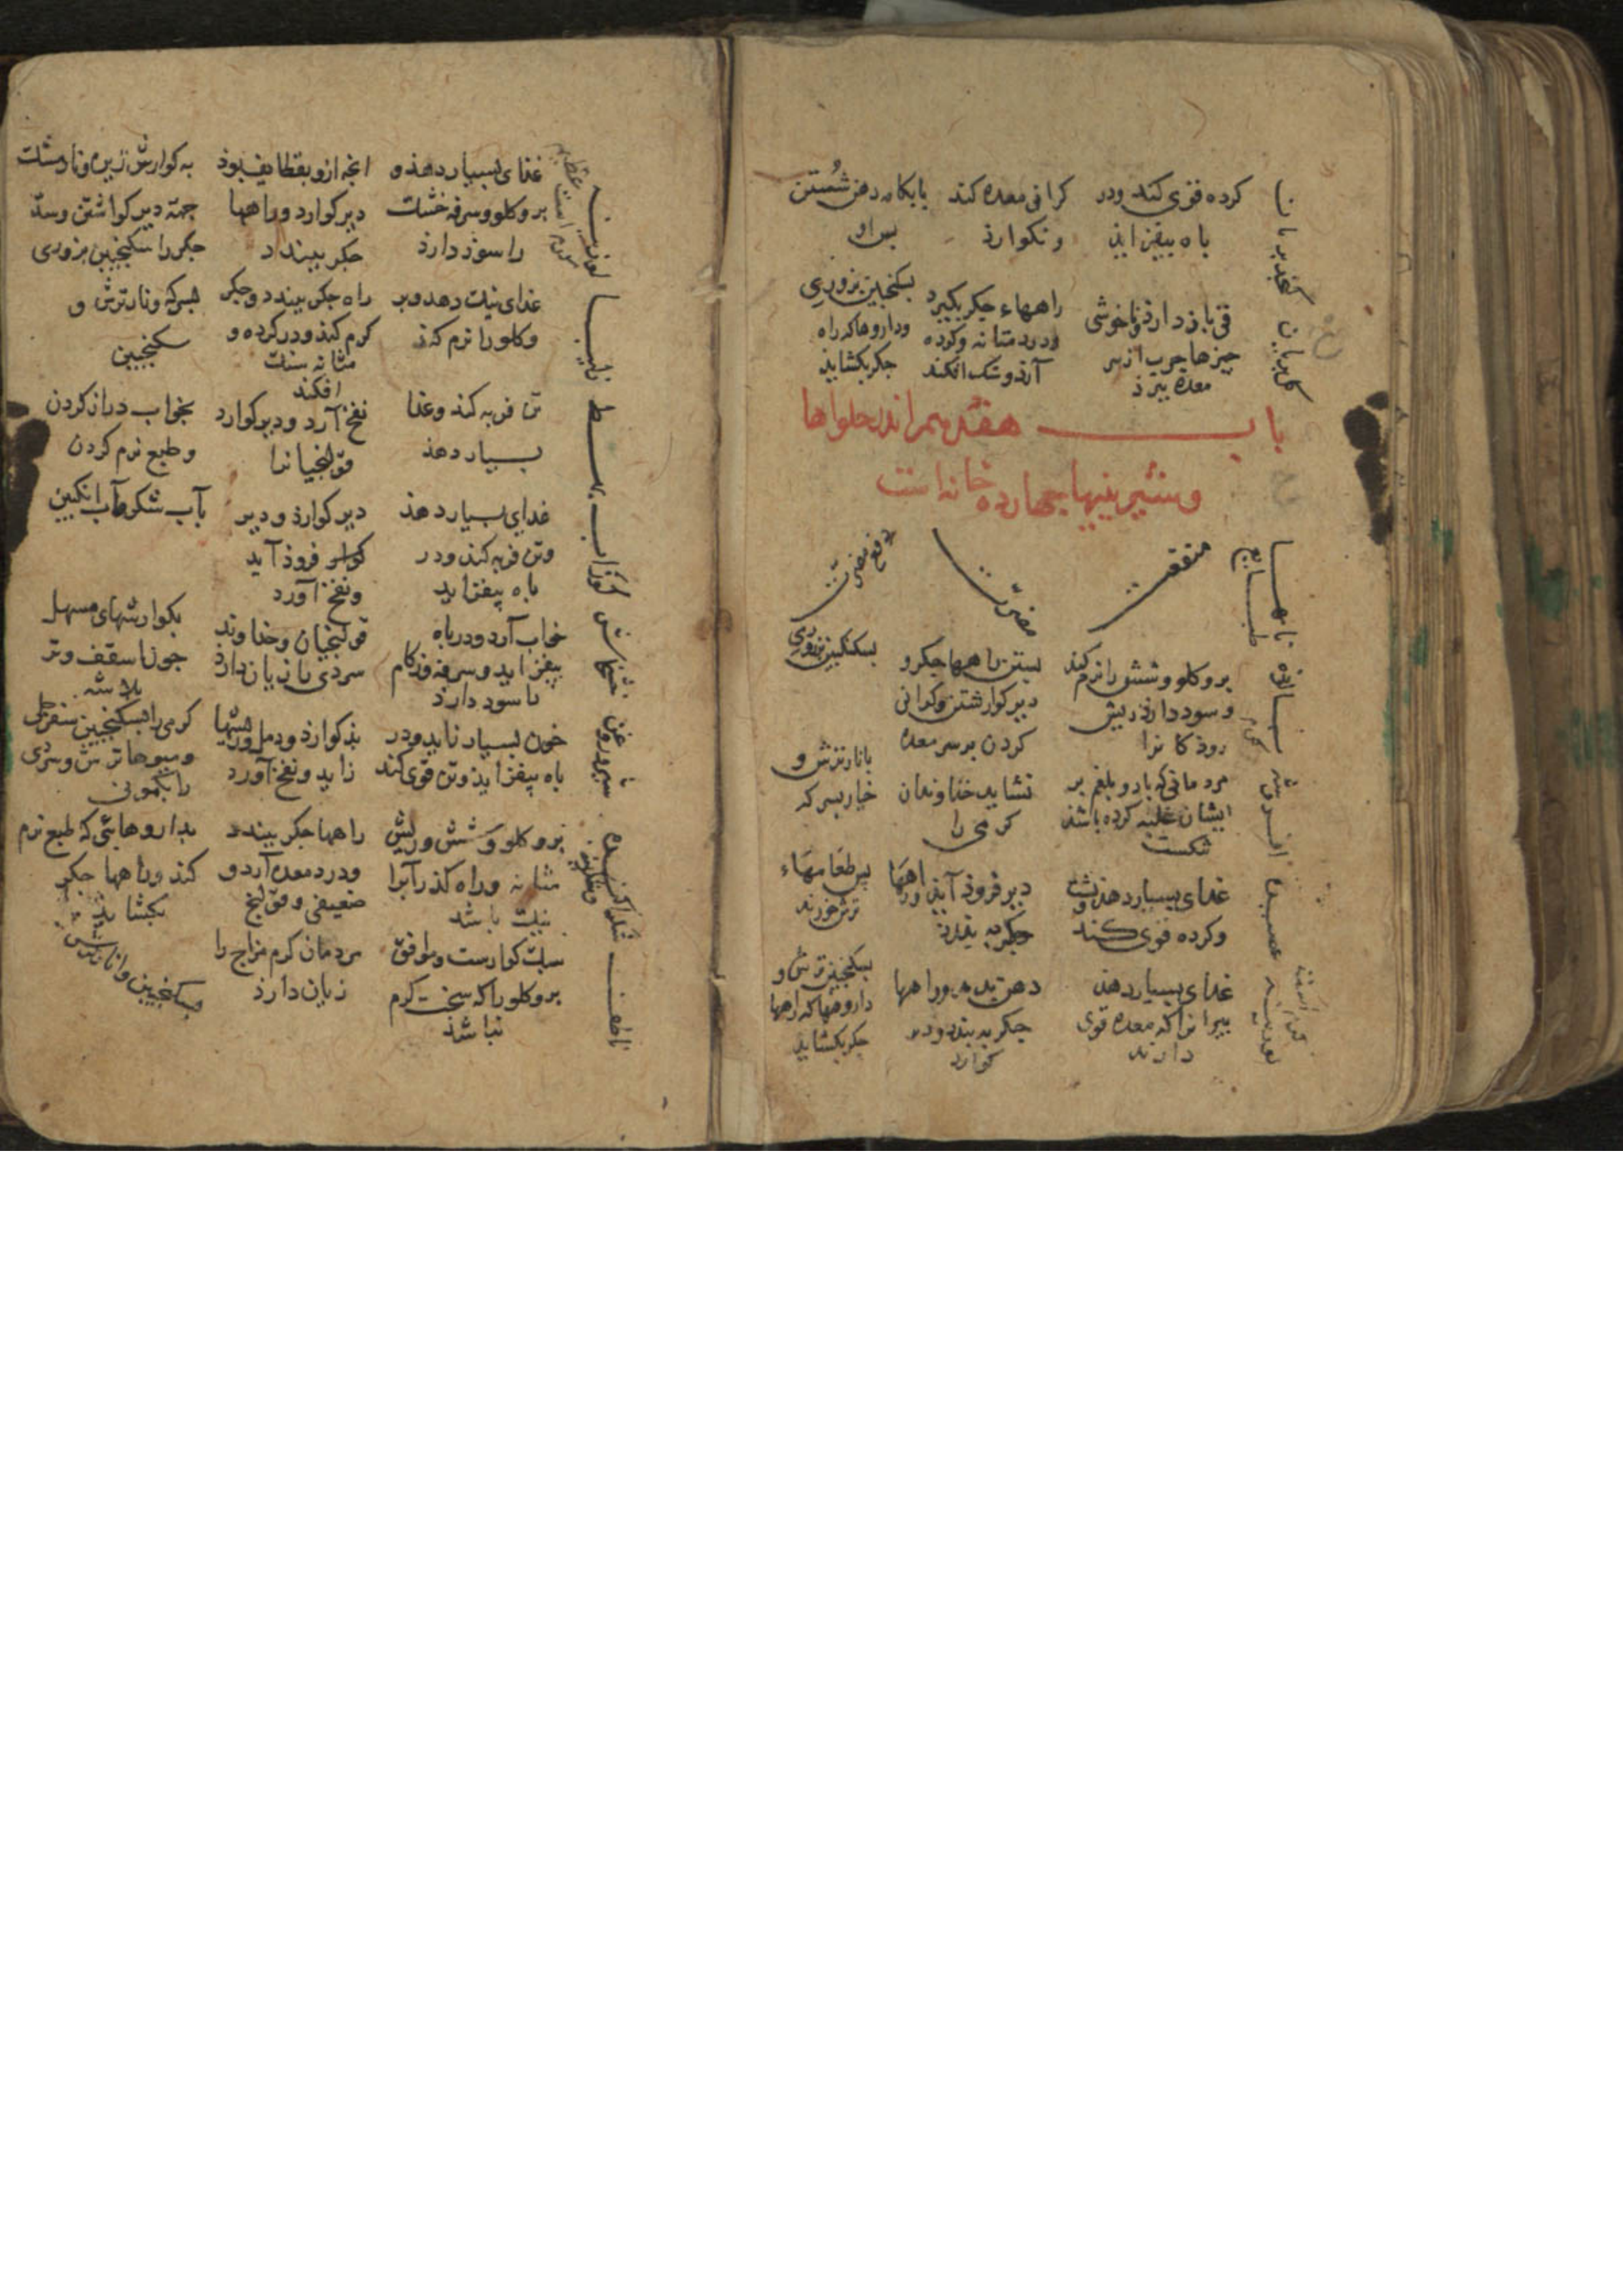 کرده قوی کند ودر
باه بیفزاید
کرانی معده کند
ونکوارد
بابکامه دهن شستن
بس او
قی باز دارد وناخوشی
چیزها چرب از سر
معده ببرد
راههاء جکر بکیرد
ودرد مثانه وکرده
آرد وسنک افکند
بسکنجبین بزوری
وداروها که راه
جکر بکشاید
باب هفدهم اندر حلواها
وشیرینیها چهارده خانه است
نامها
طبایع
منفعت
مضرت
دفع مضرت
بر وکلو وشش را نرم کند
وسود دارد ریش
رودکانرا
بستن راهها جکر و
دیر کوارشتن وکرانی
کردن بر سر معده
بسکنکبین بزوری
افروشه
مردمانی که باد وبلغم بر
ایشان غلبه کرده باشد
نشاید خداوندان
کرمی را
بانار ترش و
خیار بسرکه
عصیده
غذای بسیار دهد
وکرده قوی کند
دیر فرود آید وراهها
جکر به بندد
بس طعامهاء
ترش خورند
لوزینه
غذای بسیار دهد
بیرانرا که معده قوی
دارند
جکر به بندد ودیر
کوارد
بسکنجبین ترش و
داروهها که راهها
جکر بکشاید
غذای بسیار دهد و
بر وکلو وسرفه خشک
را سوذ دارد
انچه ازو بقطایف بود
دیر کوارد وراهها
جکر ببندد
به کوارش زیره ونارمشک
جهة دیر کواشتن وسدّ
جکر را سکنجبین بزوری
غذای نیک دهد وبر
وکلو را نرم کند
راه جکر ببندد وجکر
کرم کند ودر کرده و
مثانه سنک
افکند
بسرکه ونار ترش و
سکنجبین
تن فربه کند وغذا
بسیار دهد
نفخ آرد ودیر کوارد
قولنجیانرا
بخواب دراز کردن
وطبع نرم کردن
جوزاب
غذای بسیار دهد
وتن فربه کند ودر
باه بیفزاید
دیر کوارد ودیر
فرود آید
ونفخ آورد
بآب شکر وآب انکبین
خشخاش
خواب آرد ودر باه
بیفزاید وسرفه وزکام
را سود دارد
قولنجیان وخداوند
سردی را زیان دارد
بکوارشهای مسهل
شیر وروغن
خون بسیار زاید ودر
باه بیفزاید وتن قوی کند
بد کوارد ودمل وریشها
زاید ونفخ آورد
کرمی را بسکنجبین سفرجلی
ومیوها ترش وسردی
را بکمونی
بر وکلو وشش وریش
مثانه وراه کذر آبرا
نیک باشد
راهها جکر ببندد
ودرد معده آرد و
ضعیفی وقولنج
بداروهایی که طبع نرم
کند وراهها جکر
بکشاید
ناطف
سبک کوارست وموافق
بر وکلو را که سخت کرم
نباشد
مردمان کرم مزاج را
زیان دارد
بسکنجبین وانار ترش